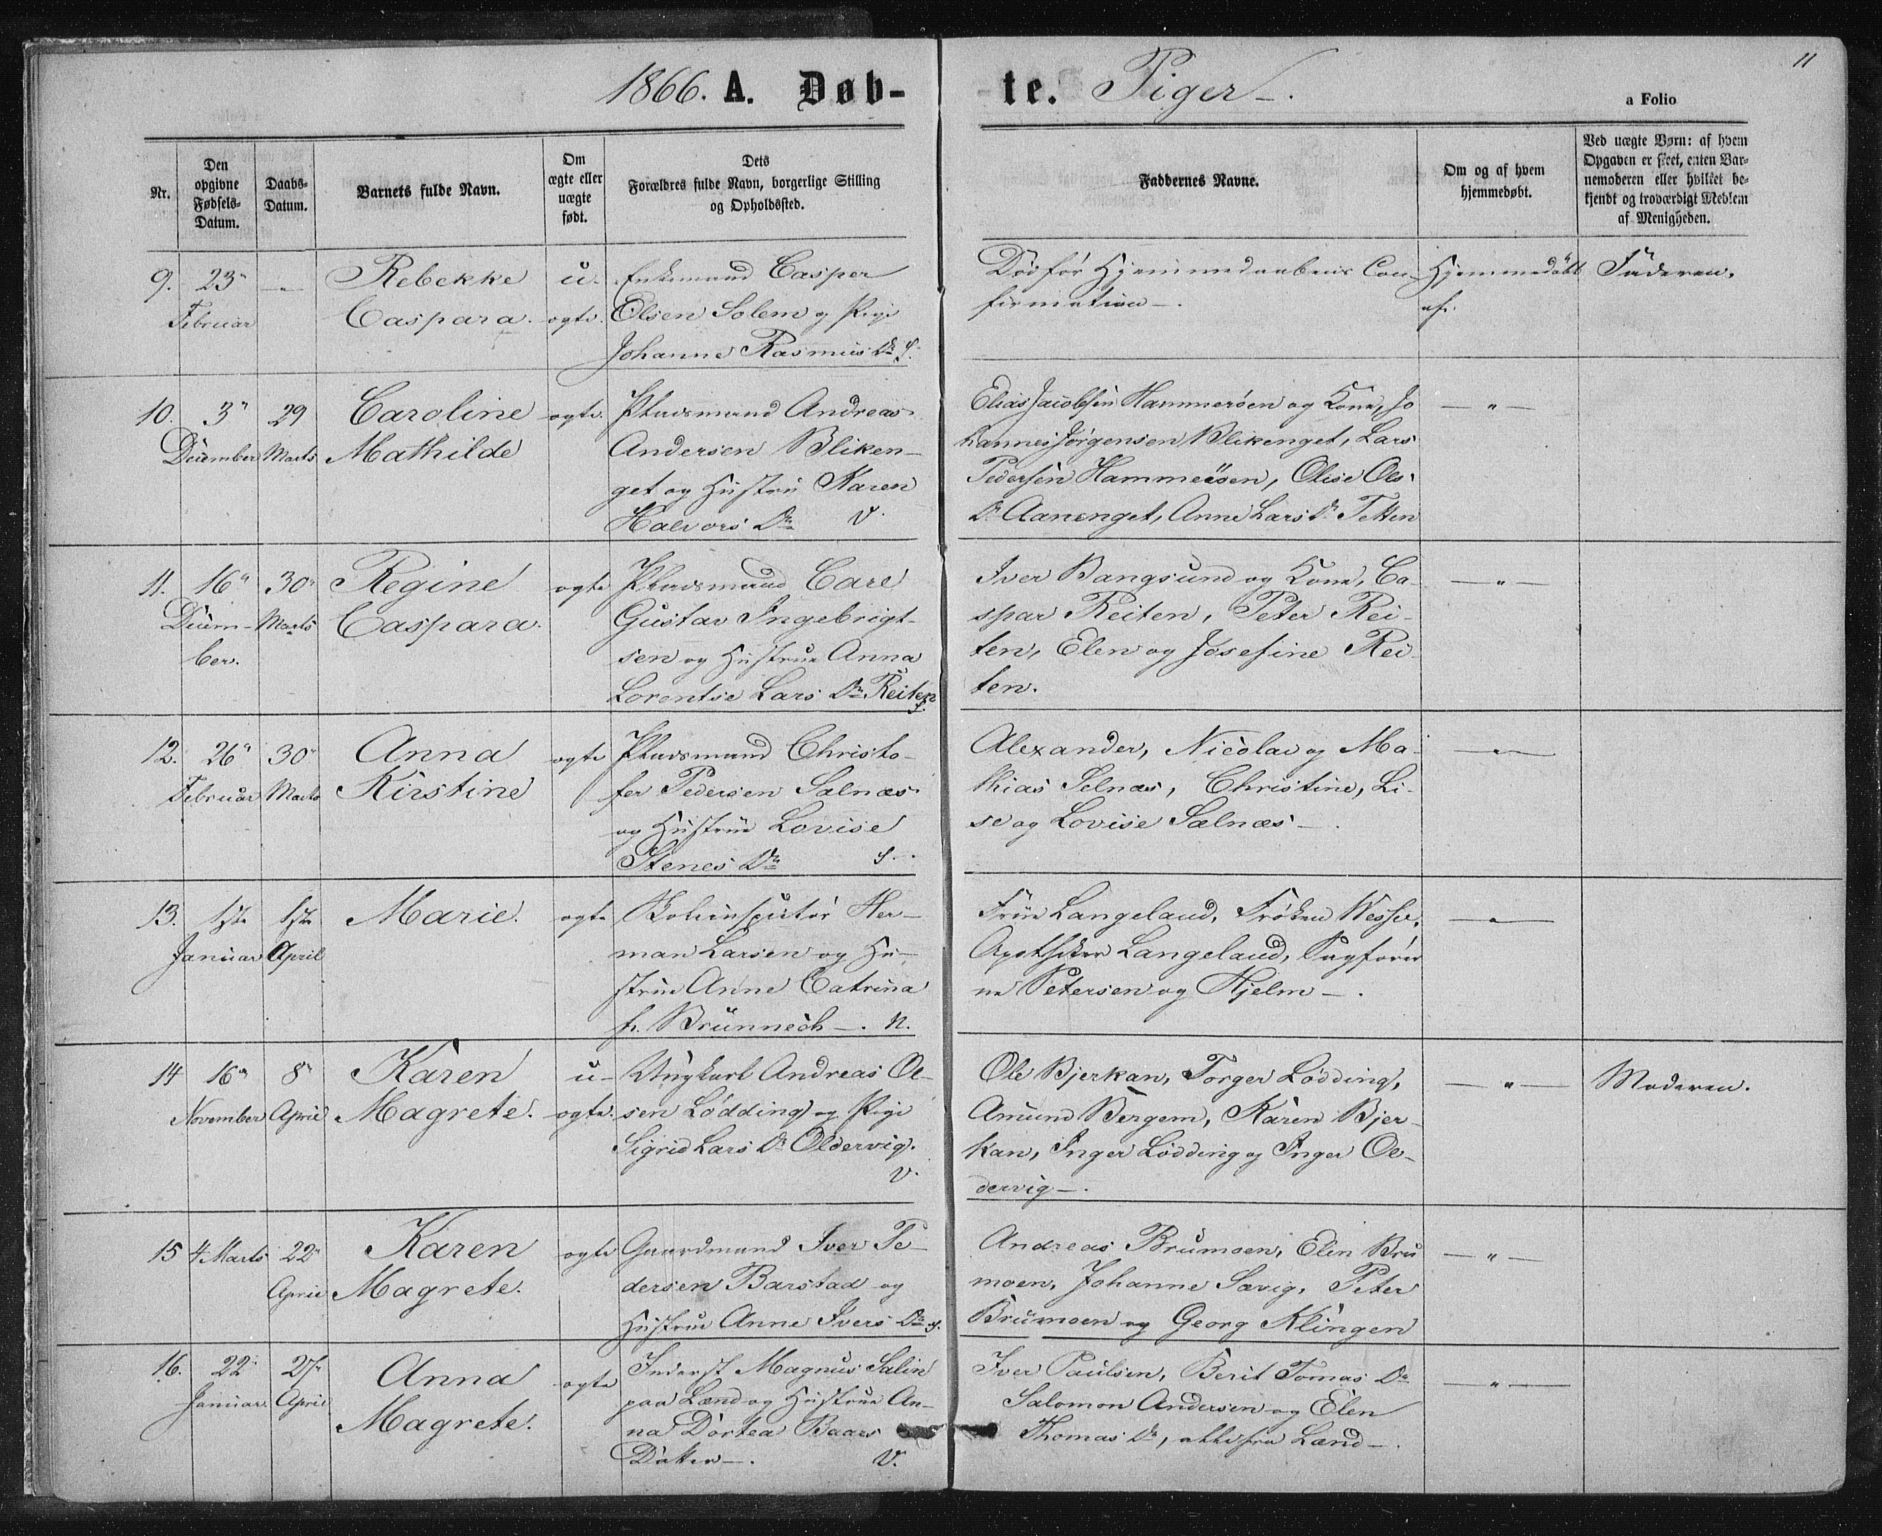 11
1866. A. Døb- te. Piger.
a Folio
Nr.
Den opgivne Fødsels-Datum.
Daabs-Datum.
Barnets fulde Navn.
Om ægte eller uægte født.
Dets Forældres fulde Navn, borgerlige Stilling og Opholdssted.
Faddernes Navne.
Om og af hvem hjemmedøbt.
Ved uægte Børn: af hvem Opgaven er skeet, enten Barnemoderen eller hvilket bekjendt og troværdigt Medlem af Menigheden.
9. 23 Februar
Rebekke
Caspara.
u-
ægte.
Enkemand Casper
Olsen Solem og Pige
Johanne Rasmus Dr S.
Død før Hjemmedaabens Con-
firmation.
Hjemmedøbt
af.
Faderen.
10. 3 December 29 Marts
Caroline
Mathilde
ægte.
Pladsmand Andreas
Andersen Bliken-
get og Hustru Karen
Halvors Dr V.
Elias Jacobsen Hammerøen og Kone, Jo
hannes Jørgensen Blikenget, Lars
Pedersen Hammeröen, Olise Ols
Dr Aanenget, Anne Lars Dr Tetten
— " —
11. 16 Decem-
ber. 30 Marts
Regine
Caspara.
ægte
Pladsmand Carl
Gustav Ingebrigt-
sen og Hustrue Anna
Lorentse Lars Dr Reiten
S.
Iver Bangsund og Kone, Ca-
spar Reiten, Peter Rei-
ten, Elen og Josefine Rei
ten.
— " —
12. 26 Februar 30 Marts
Anna
Kirstine
ægte
Pladsmand Christo-
fer Pedersen Sælnæs
og Hustrue Lovise
Stenes Dr S.
Alexander, Nicolai og Ma-
thias Selnæs, Christine, Li-
se og Lovise Sælnæs.
— " —
13. 1ste Januar 1ste April
Marie.
ægte
Her-
man Larsen og Hu-
strue Anne Catrina
f. Brünnech. N.
Frue Langeland, Frøken Wessel,
Apotheker Langeland, Sagfører
ne Petersen og Hjelm.
— " —
14 16 November 8 April
Karen
Magrete.
u-
ægte.
Ungkarl Andreas Ol-
sen Lødding og Pige
Sigrid Lars Dr Oldervig.
V.
Ole Bjerkan, Torger Lødding,
Amund Bergem, Karen Bjer-
kan, Inger Lødding og Inger Ol-
dervig.
— " —
Moderen.
15 4 Marts 22 April
Karen
Magrete.
ægte
Gaardmand Iver Pe-
dersen Barstad og
Hustrue Anne Ivers Dr S.
Andreas Brumoen, Elen Bru
moen, Johanne Sævig, Peter
Brumoen og Georg Klingen
— " —
16. 22 Januar 27 April
Anna
Magrete.
ægte
Inderst Magnus Salin
paa Lænd og Hustrue An-
na Dortea Baars
Datter. V.
Iver Paulsen, Berit Tomas Dr
Salomon Andersen og Elen
Thomas Dr, alle fra Lænd.
— " —